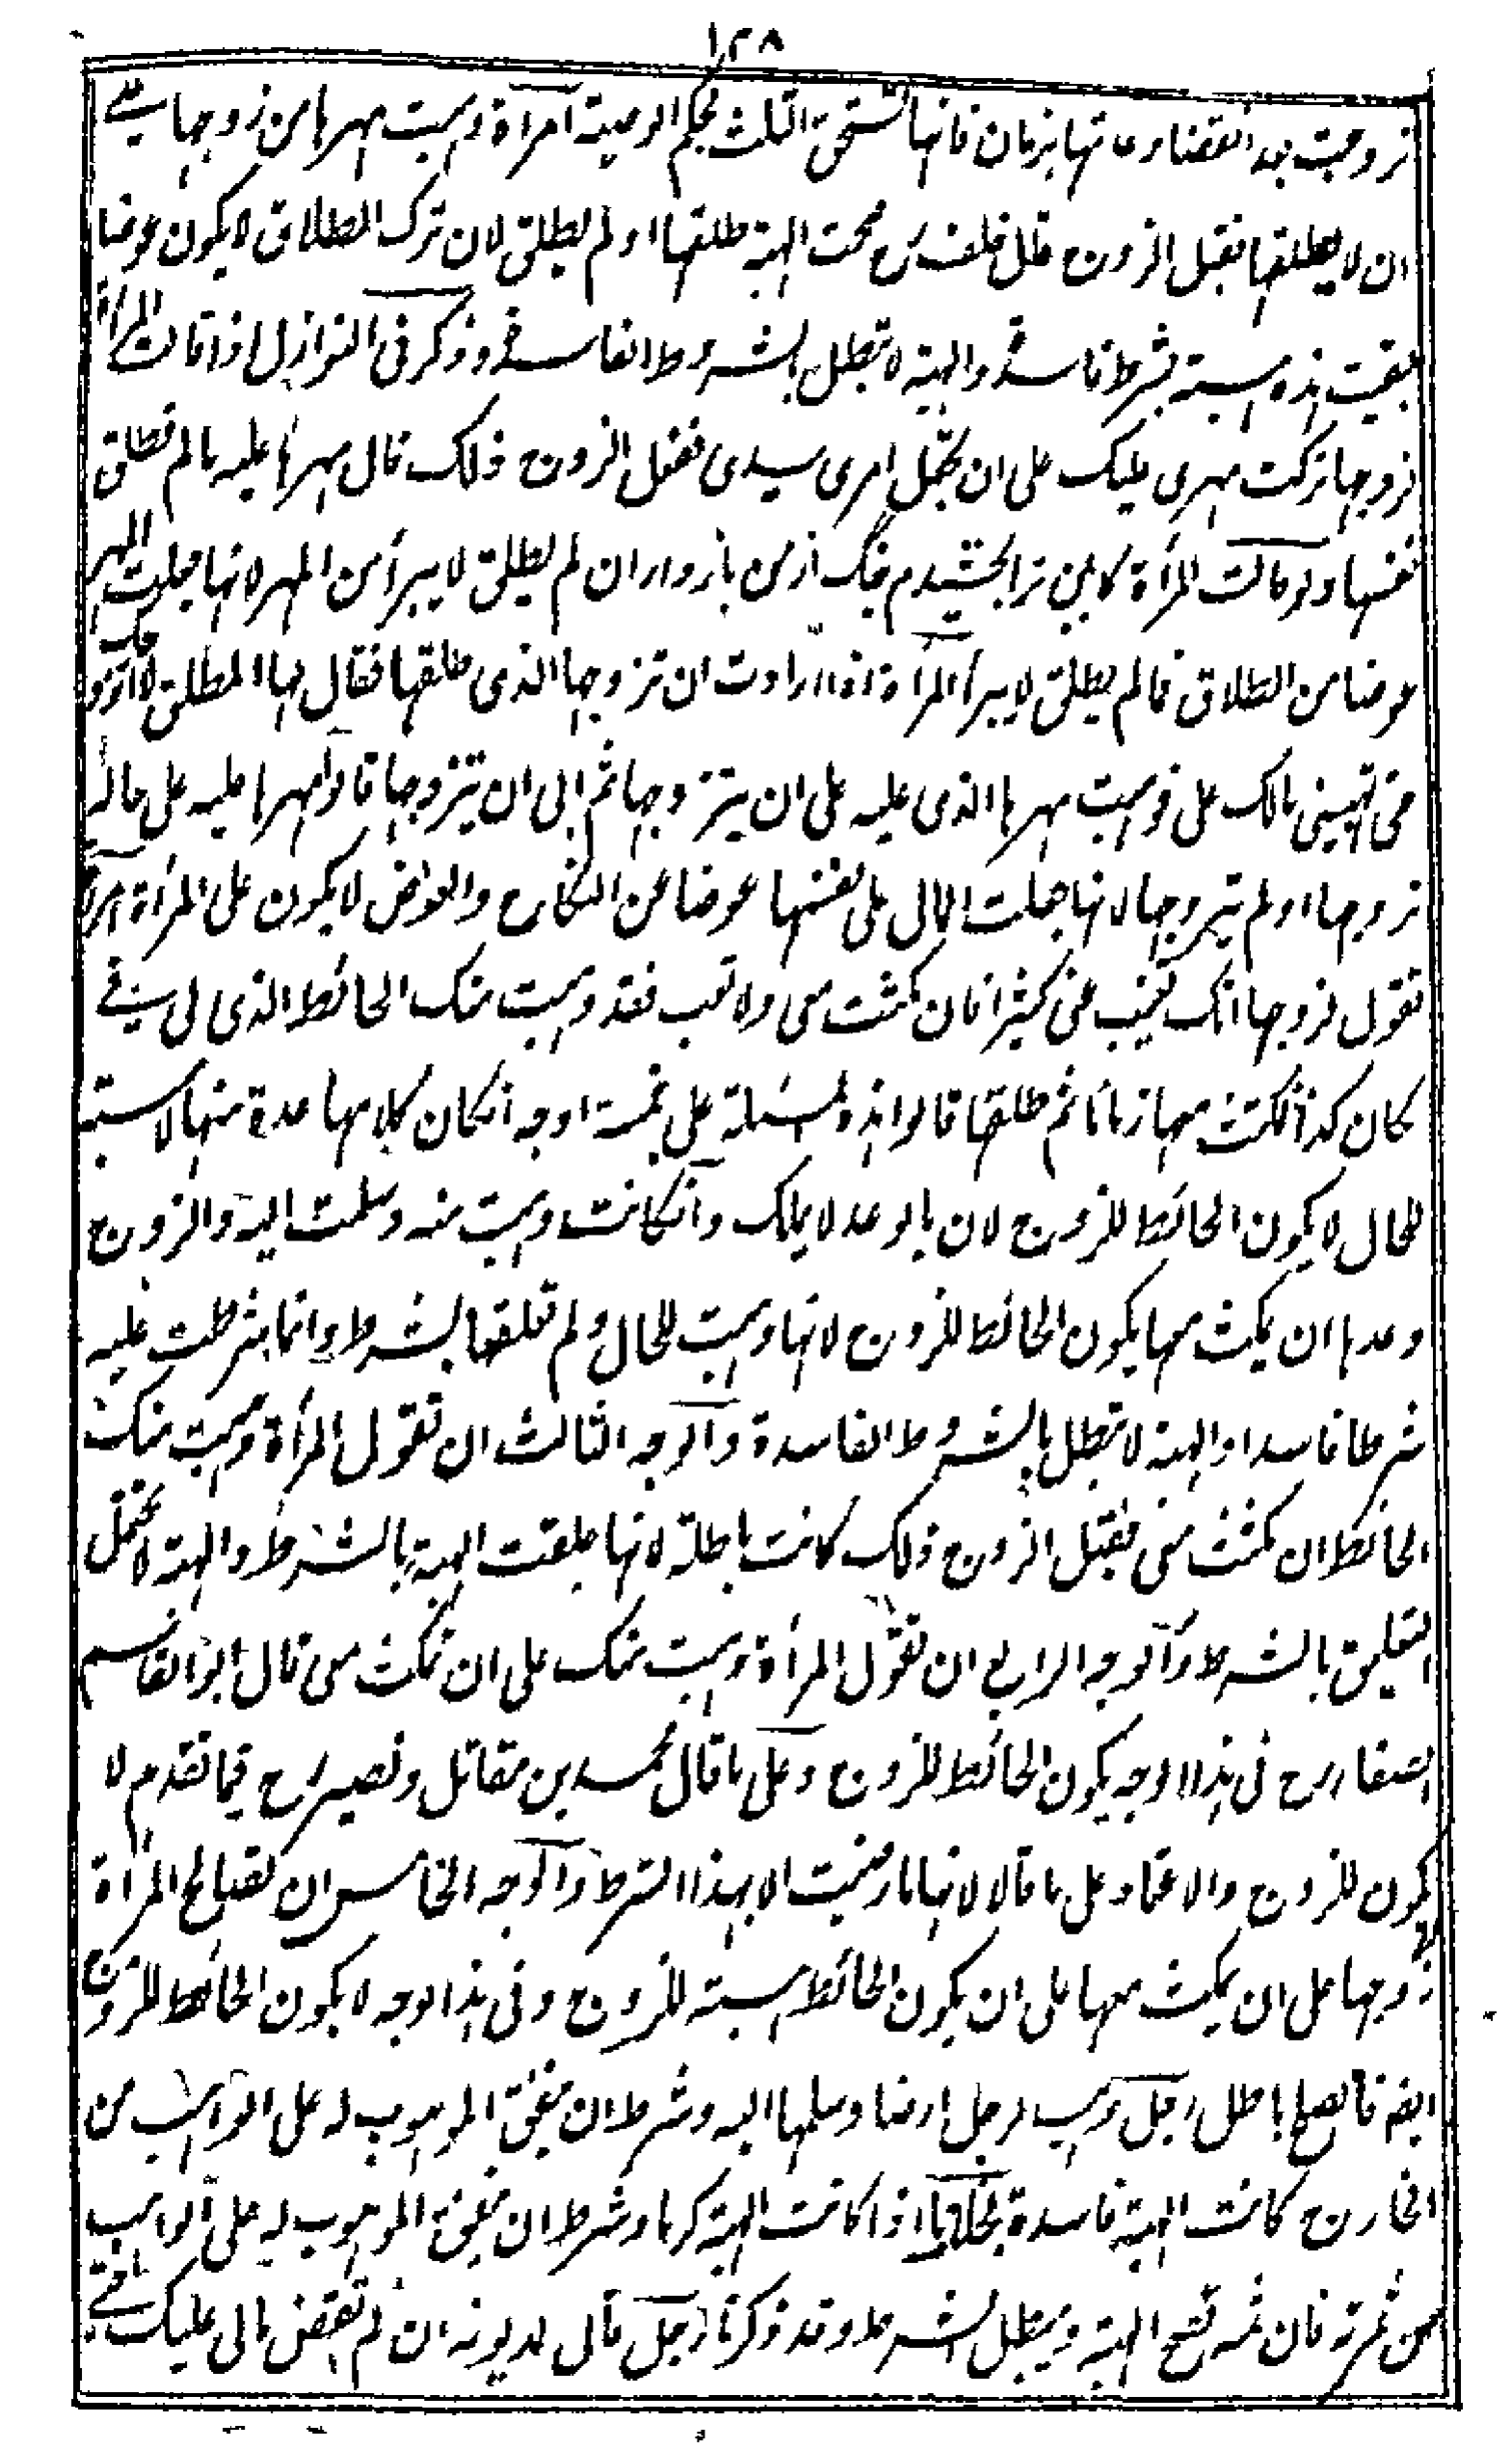 ١٢٨
تزوجت بعد انقضاء عدتها بزمان فانها تستحق الثلث بحكم الوصية امرأة وهبت مهرها من زوجها على
ان لا يطلقها فقبل الزوج قال خلف رح صحت الهبة طلقها او لم يطلق لان ترك الطلاق لا يكون عوضا
بقيت هذه هبة بشرط فاسد والهبة لا تبطل بالشروط الفاسدة وذكر في النوازل اذا قالت المرأة
لزوجها تركت مهرى عليك على ان تجعل امرى بيدى ففعل الزوج ذلك قال مهرها عليه ما لم تطلق
نفسها ولو قالت المرأة كابين ترا بخشيدم چنگ از من باز دار ان لم يطلق لا يبرأ من المهر لانها جعلت المهر
عوضا من الطلاق فما لم يطلق لا يبرأ المرأة اذا ارادت ان تزوجها الذى طلقها فقال لها المطلق لا اتزوجك
حتى تهبينى مالك على فوهبت مهرها الذى عليه على ان يتزوجها ثم ابى ان يتزوجها قالوا مهرها عليه على حاله
تزوجها او لم يتزوجها لانها جعلت المال على نفسها عوضا عن النكاح والعوض لا يكون على المرأة امرأة
تقول لزوجها انك تغيب عنى كثيرا فان مكثت معى ولا تغب فقد وهبت منك الحائط الذى لى فى
مكان كذا فمكث معها زمانا ثم طلقها قالوا هذه المسئلة على خمسة اوجه انكان كلامها عدة منها لا هبة
للحال لا يكون الحائط للزوج لان بالوعد لا يملك وانكانت وهبت منه وسلمت اليه والزوج
وعدها ان يمكث معها يكون الحائط للزوج لانها وهبت للحال ولم تعلقها بشرط وانما شرطت عليه
شرطا فاسدا والهبة لا تبطل بالشروط الفاسدة والوجه الثالث ان تقول المرأة وهبت منك
الحائط ان مكثت معى فقبل الزوج ذلك كانت باطلة لانها علقت الهبة بالشرط والهبة لا تحتمل
التعليق بالشرط والوجه الرابع ان تقول المرأة وهبت منك على ان تمكث معى قال ابو القاسم
الصفار رح فى هذا الوجه يكون الحائط للزوج وعلى ما قال محمد بن مقاتل ونصير رح فيما تقدم لا
يكون للزوج والاعتماد على ما قالا لانها ما رضيت الا بهذا الشرط والوجه الخامس ان تصالح المرأة
زوجها على ان يمكث معها على ان يكون الحائط هبة للزوج وفى هذا الوجه لا يكون الحائط للزوج
ايضا فالصلح باطل رجل وهب لرجل ارضا وسلمها اليه وشرط ان ينفق الموهوب له على الواهب من
الخارج كانت الهبة فاسدة بخلاف ما اذا كانت الهبة كرما وشرط ان ينفق الموهوب له على الواهب
من ثمرته فان ثمه تصح الهبة ويبطل الشرط وقد ذكرنا رجل قال لمديونه ان لم تقض مالى عليك حتى